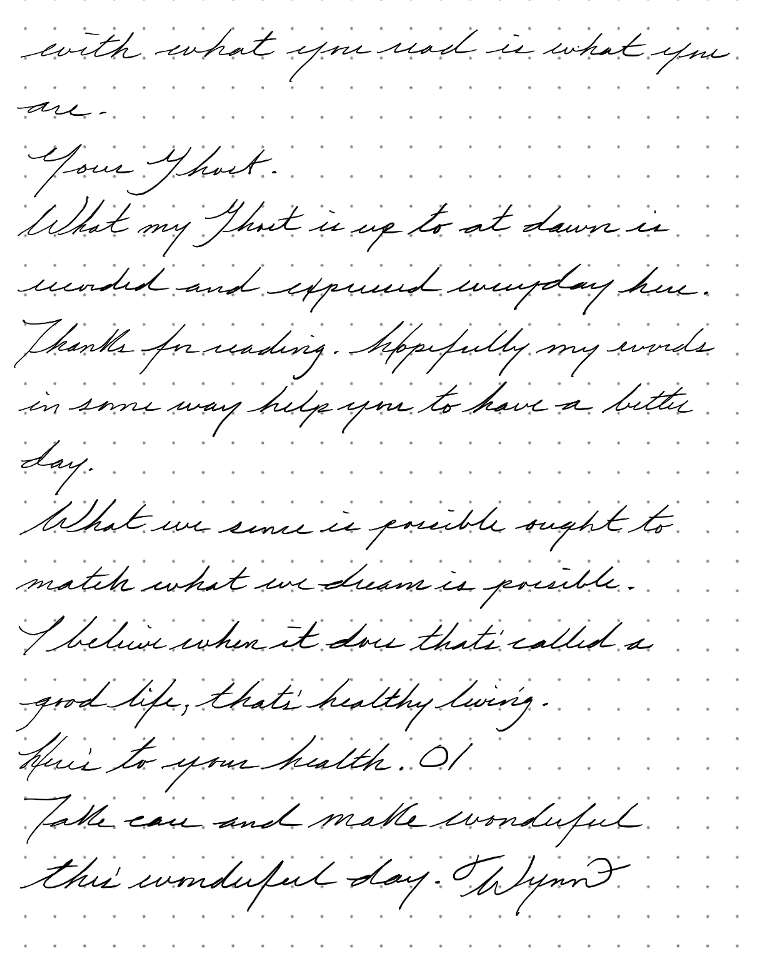 with what you read is what you
are.
Your Ghost.
What my Ghost is up to at dawn is
recorded and expressed everyday here.
Thanks for reading. Hopefully my words
in some way help you to have a better
day.
What we sense is possible ought to
match what we dream is possible.
I believe when it does that's called a
good life, that's healthy living.
Here's to your health. 01
Take care and make wonderful
this wonderful day. Wynn